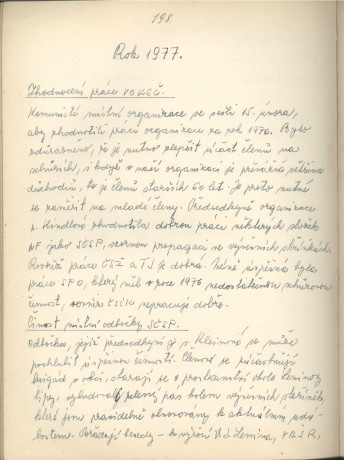 198
Rok 1977.
Zhodnocení práce VO KSČ.
Komunisté místní organizace se sešli 15. února,
aby zhodnotili práci organizace za rok 1976. Bylo
zdůrazněno, že je nutno zlepšit účast členů na
schůzích, i když v naší organizaci je převážná většina
důchodců, to je členů starších 60 let. Je proto nutné
se zaměřit na mladé členy. Předsedkyně organizace
s. Kindlová zhodnotila dobrou práci některých složek
NF jako SČSP, názornou propagaci ve vývěsních skříňkách.
Rovněž práce ČSŽ a TJ je dobrá. Méně úspěšná byla
práce SPO, který měl v roce 1976 nedostatečnou schůzovou
činnost, rovněž nepracuje dobře.
Činnost místní odbočky SČSP.
Odbočka, jejíž předsedkyní je s. Kleinová se může
pochlubit úspěšnou činností. Členové se zúčastňují
brigád v obci, starají se o prostranství okolo Leninovy
lípy, vybudovali zelený pás kolem vývěsních skříněk,
které jsou pravidelně obnovovány k aktuálním udá-
lostem. Pořádají besedy - k výročí V. I. Lenina, VŘSR,